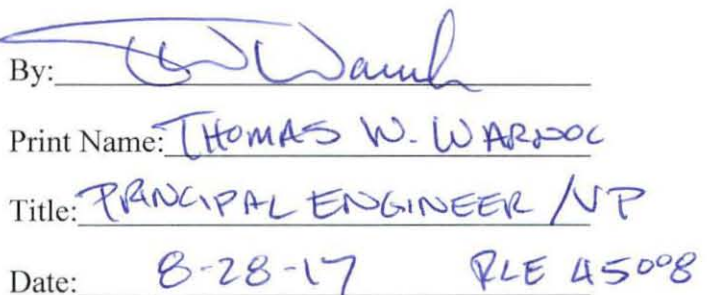 By:
Print Name: THOMAS W. WARNOC
Title: PRINCIPAL ENGINEER / VP
Date: 8-28-17 RLE 45008